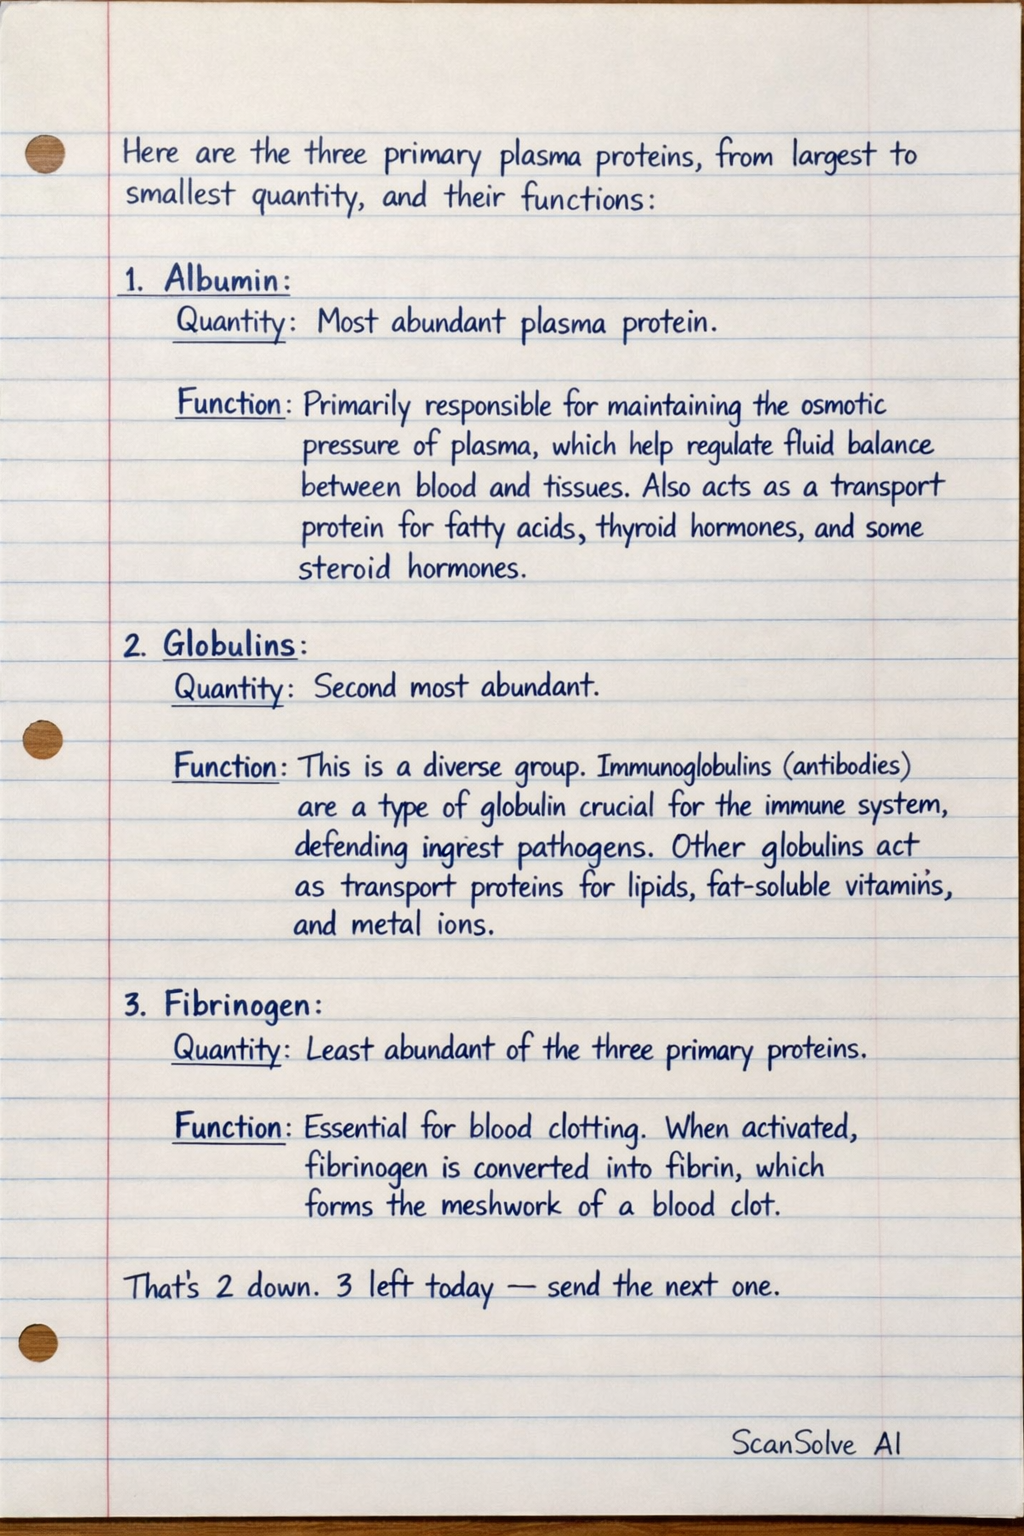 Here are the three primary plasma proteins, from largest to
smallest quantity, and their functions:
1. Albumin:
Quantity: Most abundant plasma protein.
Function: Primarily responsible for maintaining the osmotic
pressure of plasma, which help regulate fluid balance
between blood and tissues. Also acts as a transport
protein for fatty acids, thyroid hormones, and some
steroid hormones.
2. Globulins:
Quantity: Second most abundant.
Function: This is a diverse group. Immunoglobulins (antibodies)
are a type of globulin crucial for the immune system,
defending ingrest pathogens. Other globulins act
as transport proteins for lipids, fat-soluble vitamins,
and metal ions.
3. Fibrinogen:
Quantity: Least abundant of the three primary proteins.
Function: Essential for blood clotting. When activated,
fibrinogen is converted into fibrin, which
forms the meshwork of a blood clot.
That's 2 down. 3 left today — send the next one.
ScanSolve AI